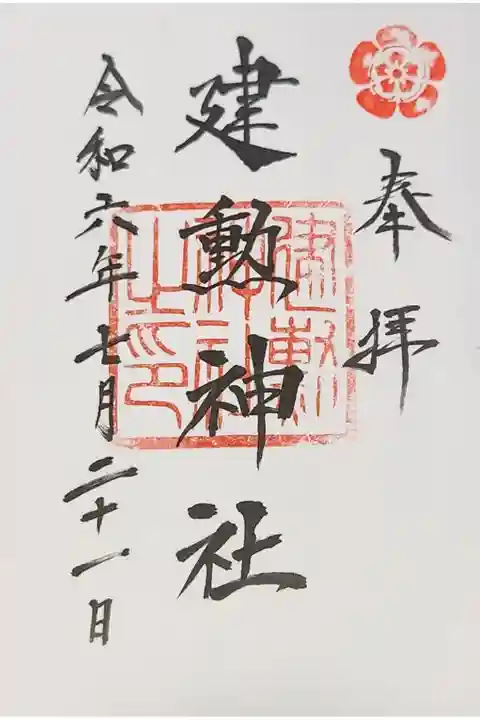 奉拝
建勲神社
建勲
神社
之印
令和六年七月二十一日